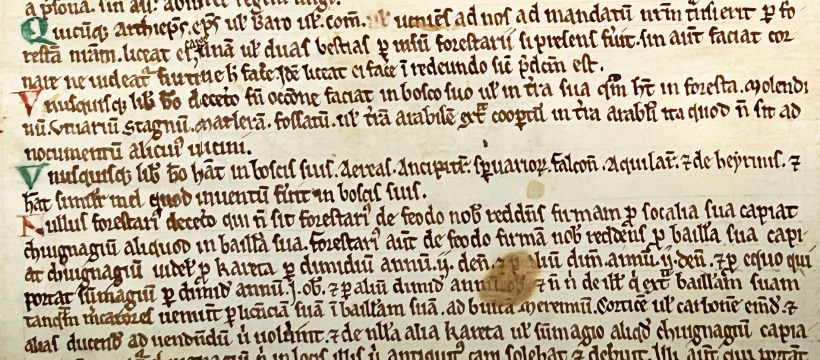 Quicūq; Archiep̄s. ep̄s ul̛ Baro ul̛. com̄. ueniēs ad nos ad mandatū nr̄m tͣnsierit ꝑ fo
restā nr̄am. liceat ei capͤ unā ul̛ duas bestias ꝑ uisū forestarii si presens fuīt. sin aūt faciat cor
nare ne uideatͬ furtiue h̄ facͤe. Idē liceat ei facͤe ī redeundo sic̄ p̄dcm̄ est.
Vnusquisq; lib̄ hō decetͦo sn̄ occōne faciat in bosco suo ul̛ in tr̄a sua qͣm h̄t in foresta. Molendi
nū. Viuariū. Stagnū. Marlerā. fossatū. ul̛ tr̄a arabilē extͣ coop̄tū in tr̄a arabli ita quod n̄ sit ad
nocumentū alicuiꝰ uicini.
Vnusquisq; lib̄ hō hāt in boscis suis. Aereas. Ancipitrū. Spuarioꝝ. falconū. Aquilarū. ⁊ de heyruns. ⁊
hāt simlitͬ mel quod inuentū fūit in boscis suis.
Nullus forestariꝰ decetͦo qui n̄ sit forestariꝰ de feodo nob̄ reddēns firmam ꝑ balliua sua capiat
chiuignagiū aliquod in ballīa sua. forestariꝰ aūt de feodo firmā nob̄ reddēns ꝑ ballīa sua capi
at chiuignagiū uidel̛. ꝑ kareta ꝑ dimidiū annū. ij. den̄. ⁊ ꝑ aliū dim̄. annū. ij. den̄. ⁊ ꝑ equo qui
portat sūmagiū ꝑ dimid̄ annū. j. ob̄. ⁊ ꝑ aliū dimid̄ annū. ob̄. ⁊ n̄ n̄ de ill̛ q̄ extͣ ballīam suam
tanqͣm m̄catores ueniūt ꝑ licēciam suā ī ballīam suā. ad buscā. Meremiū. Corticē ul̛ carbonē emēd̄. ⁊
alias ducend̄ ad uendendū u̇ uolūint. ⁊ de nlla alia kareta ul̛ sūmagio aliqd̄ chiuignagiū capia